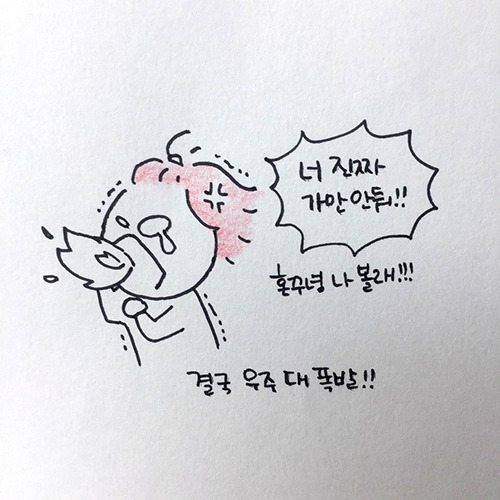 너 진짜
가만 안둬!!
혼꾸녕 나 볼래!!!
결국 우주 대 폭발!!